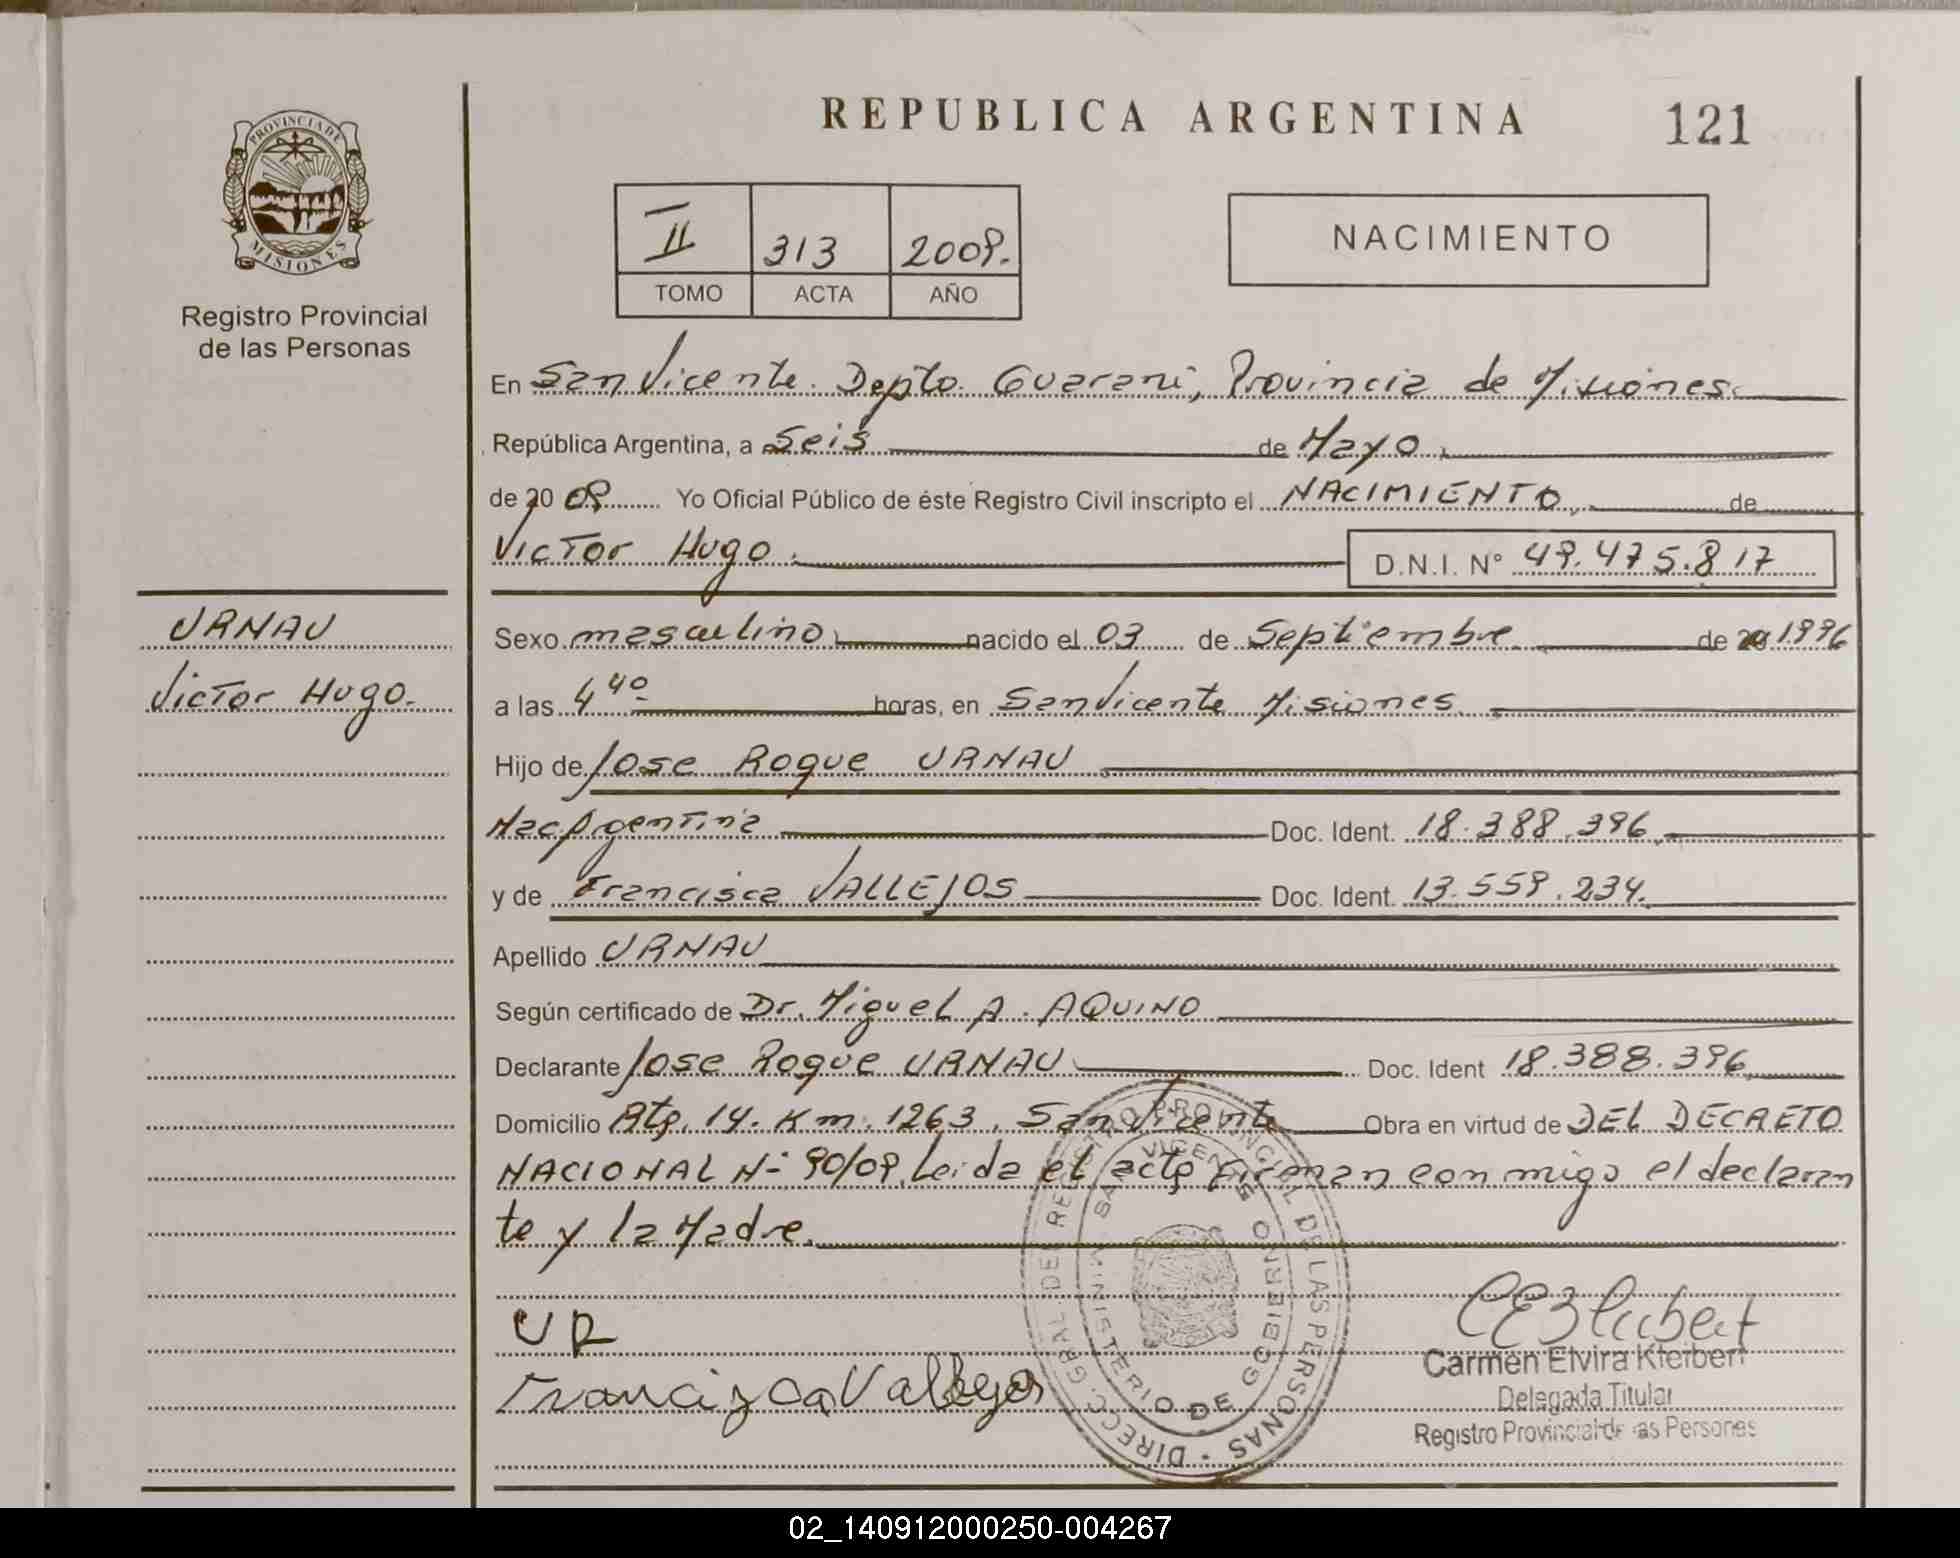 REPUBLICA ARGENTINA
121
PROVINCIA DE
MISIONES
Registro Provincial
de las Personas
II 313 2009.
TOMO ACTA AÑO
NACIMIENTO
En San Vicente. Depto. Guarani, Provincia de Misiones.
República Argentina, a Seis de Mayo
de 2009 Yo Oficial Público de éste Registro Civil inscripto el NACIMIENTO de
Victor Hugo. D.N.I. N° 49.475.817
URNAU
Victor Hugo.
Sexo masculino nacido el 03 de Septiembre de 1996
a las 4 40 horas, en San Vicente Misiones
Hijo de Jose Roque URNAU
Nac Argentina Doc. Ident. 18.388.396
y de Francisca VALLEJOS Doc. Ident. 13.559.234.
Apellido URNAU
Según certificado de Dr. Miguel A. AQUINO
Declarante Jose Roque URNAU Doc. Ident 18.388.396
Domicilio Rta. 14. Km. 1263, San Vicente Obra en virtud de DEL DECRETO
NACIONAL N- 90/09. Leida el acta Firman con migo el declaran
te y la Madre.
UR
Francizca Vallejos
DIRECC. GRAL. DEL REGISTRO PROVINCIAL DE LAS PERSONAS
SAN VICENTE
MINISTERIO DE GOBIERNO
Carmen Elvira Kleibert
Delegada Titular
Registro Provincial de las Personas
02_140912000250-004267